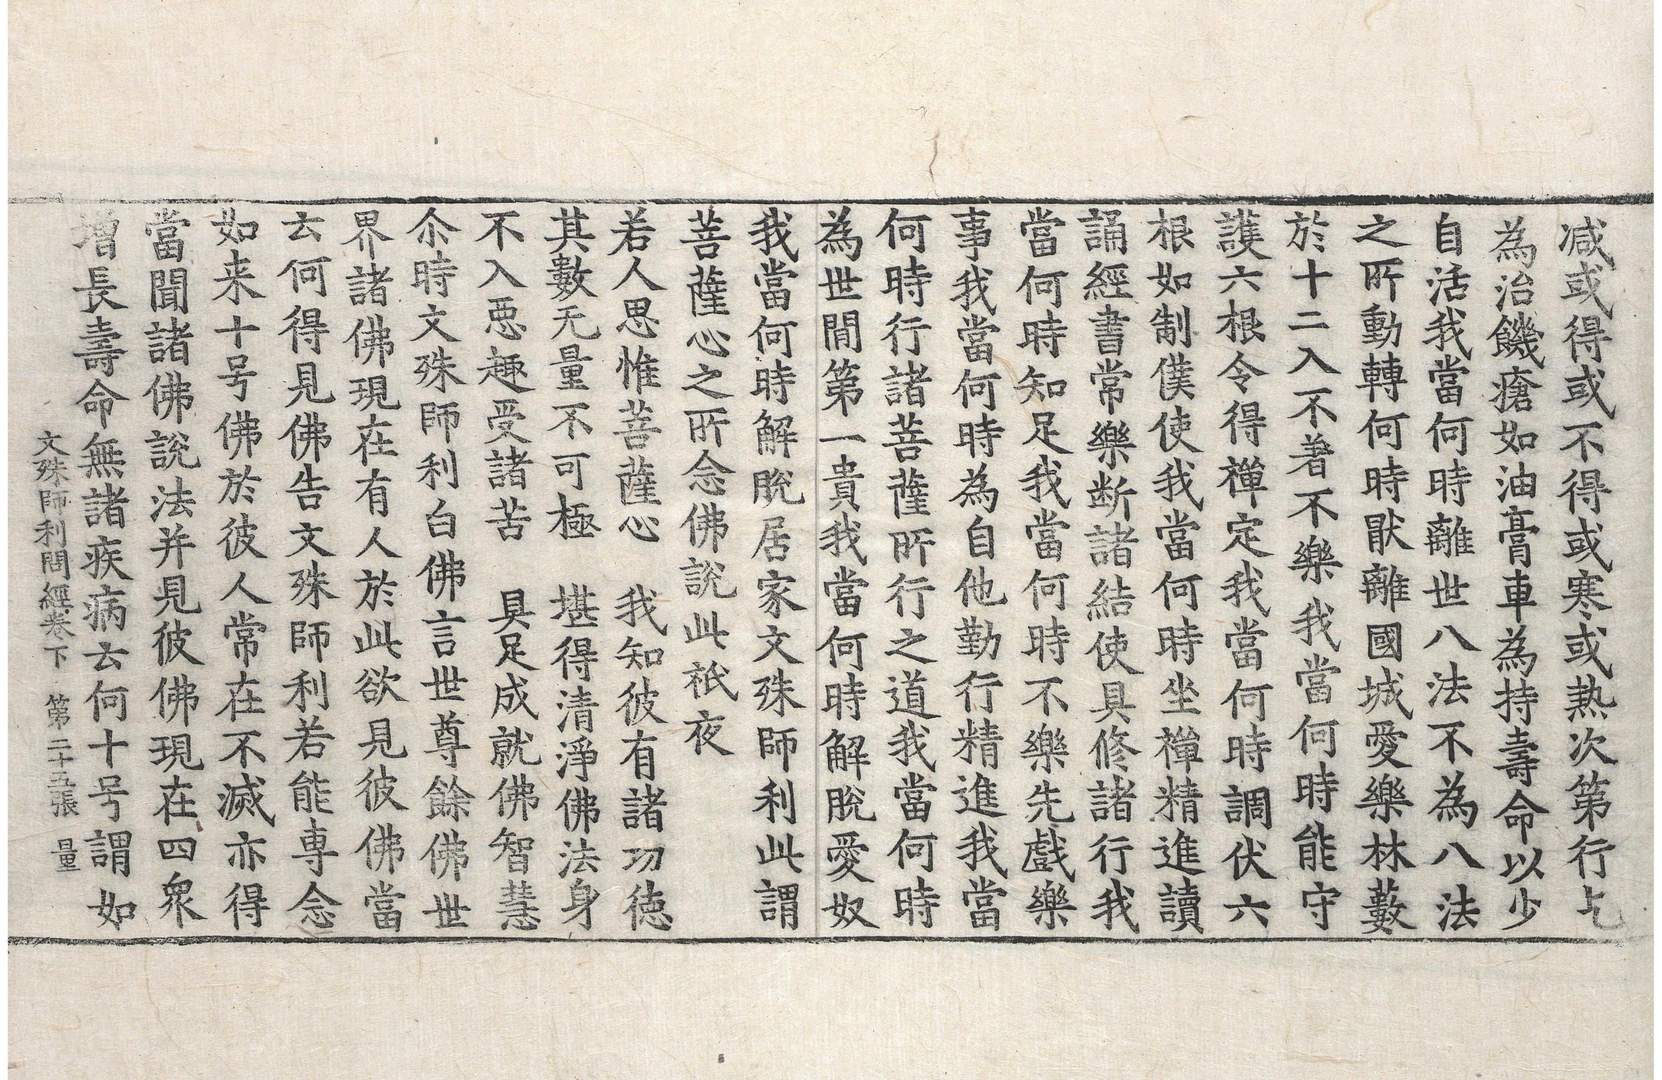 减或得或不得或寒或熱次第行乞
為治饑瘡如油膏車為持壽命以少
自活我當何時離世八法不為八法
之所動轉何時厭離國城愛樂林藪
於十二入不著不樂我當何時能守
護六根令得禪定我當何時調伏六
根如制僕使我當何時坐禪精進讀
誦經書常樂断諸結使具修諸行我
當何時知足我當何時不樂先戲樂
事我當何時為自他勤行精進我當
何時行諸菩薩所行之道我當何時
為世間第一貴我當何時解脫愛奴
我當何時解脫居家文殊師利此謂
菩薩心之所念佛說此祇夜
若人思惟菩薩心　我知彼有諸功徳
其數无量不可極　堪得清淨佛法身
不入惡趣受諸苦　具足成就佛智慧
尒時文殊師利白佛言世尊餘佛世
界諸佛現在有人於此欲見彼佛當
云何得見佛告文殊師利若能専念
如来十号佛於彼人常在不滅亦得
當聞諸佛說法并見彼佛現在四衆
增長壽命無諸疾病云何十号謂如
文殊師利問經卷下　第二十五張　量